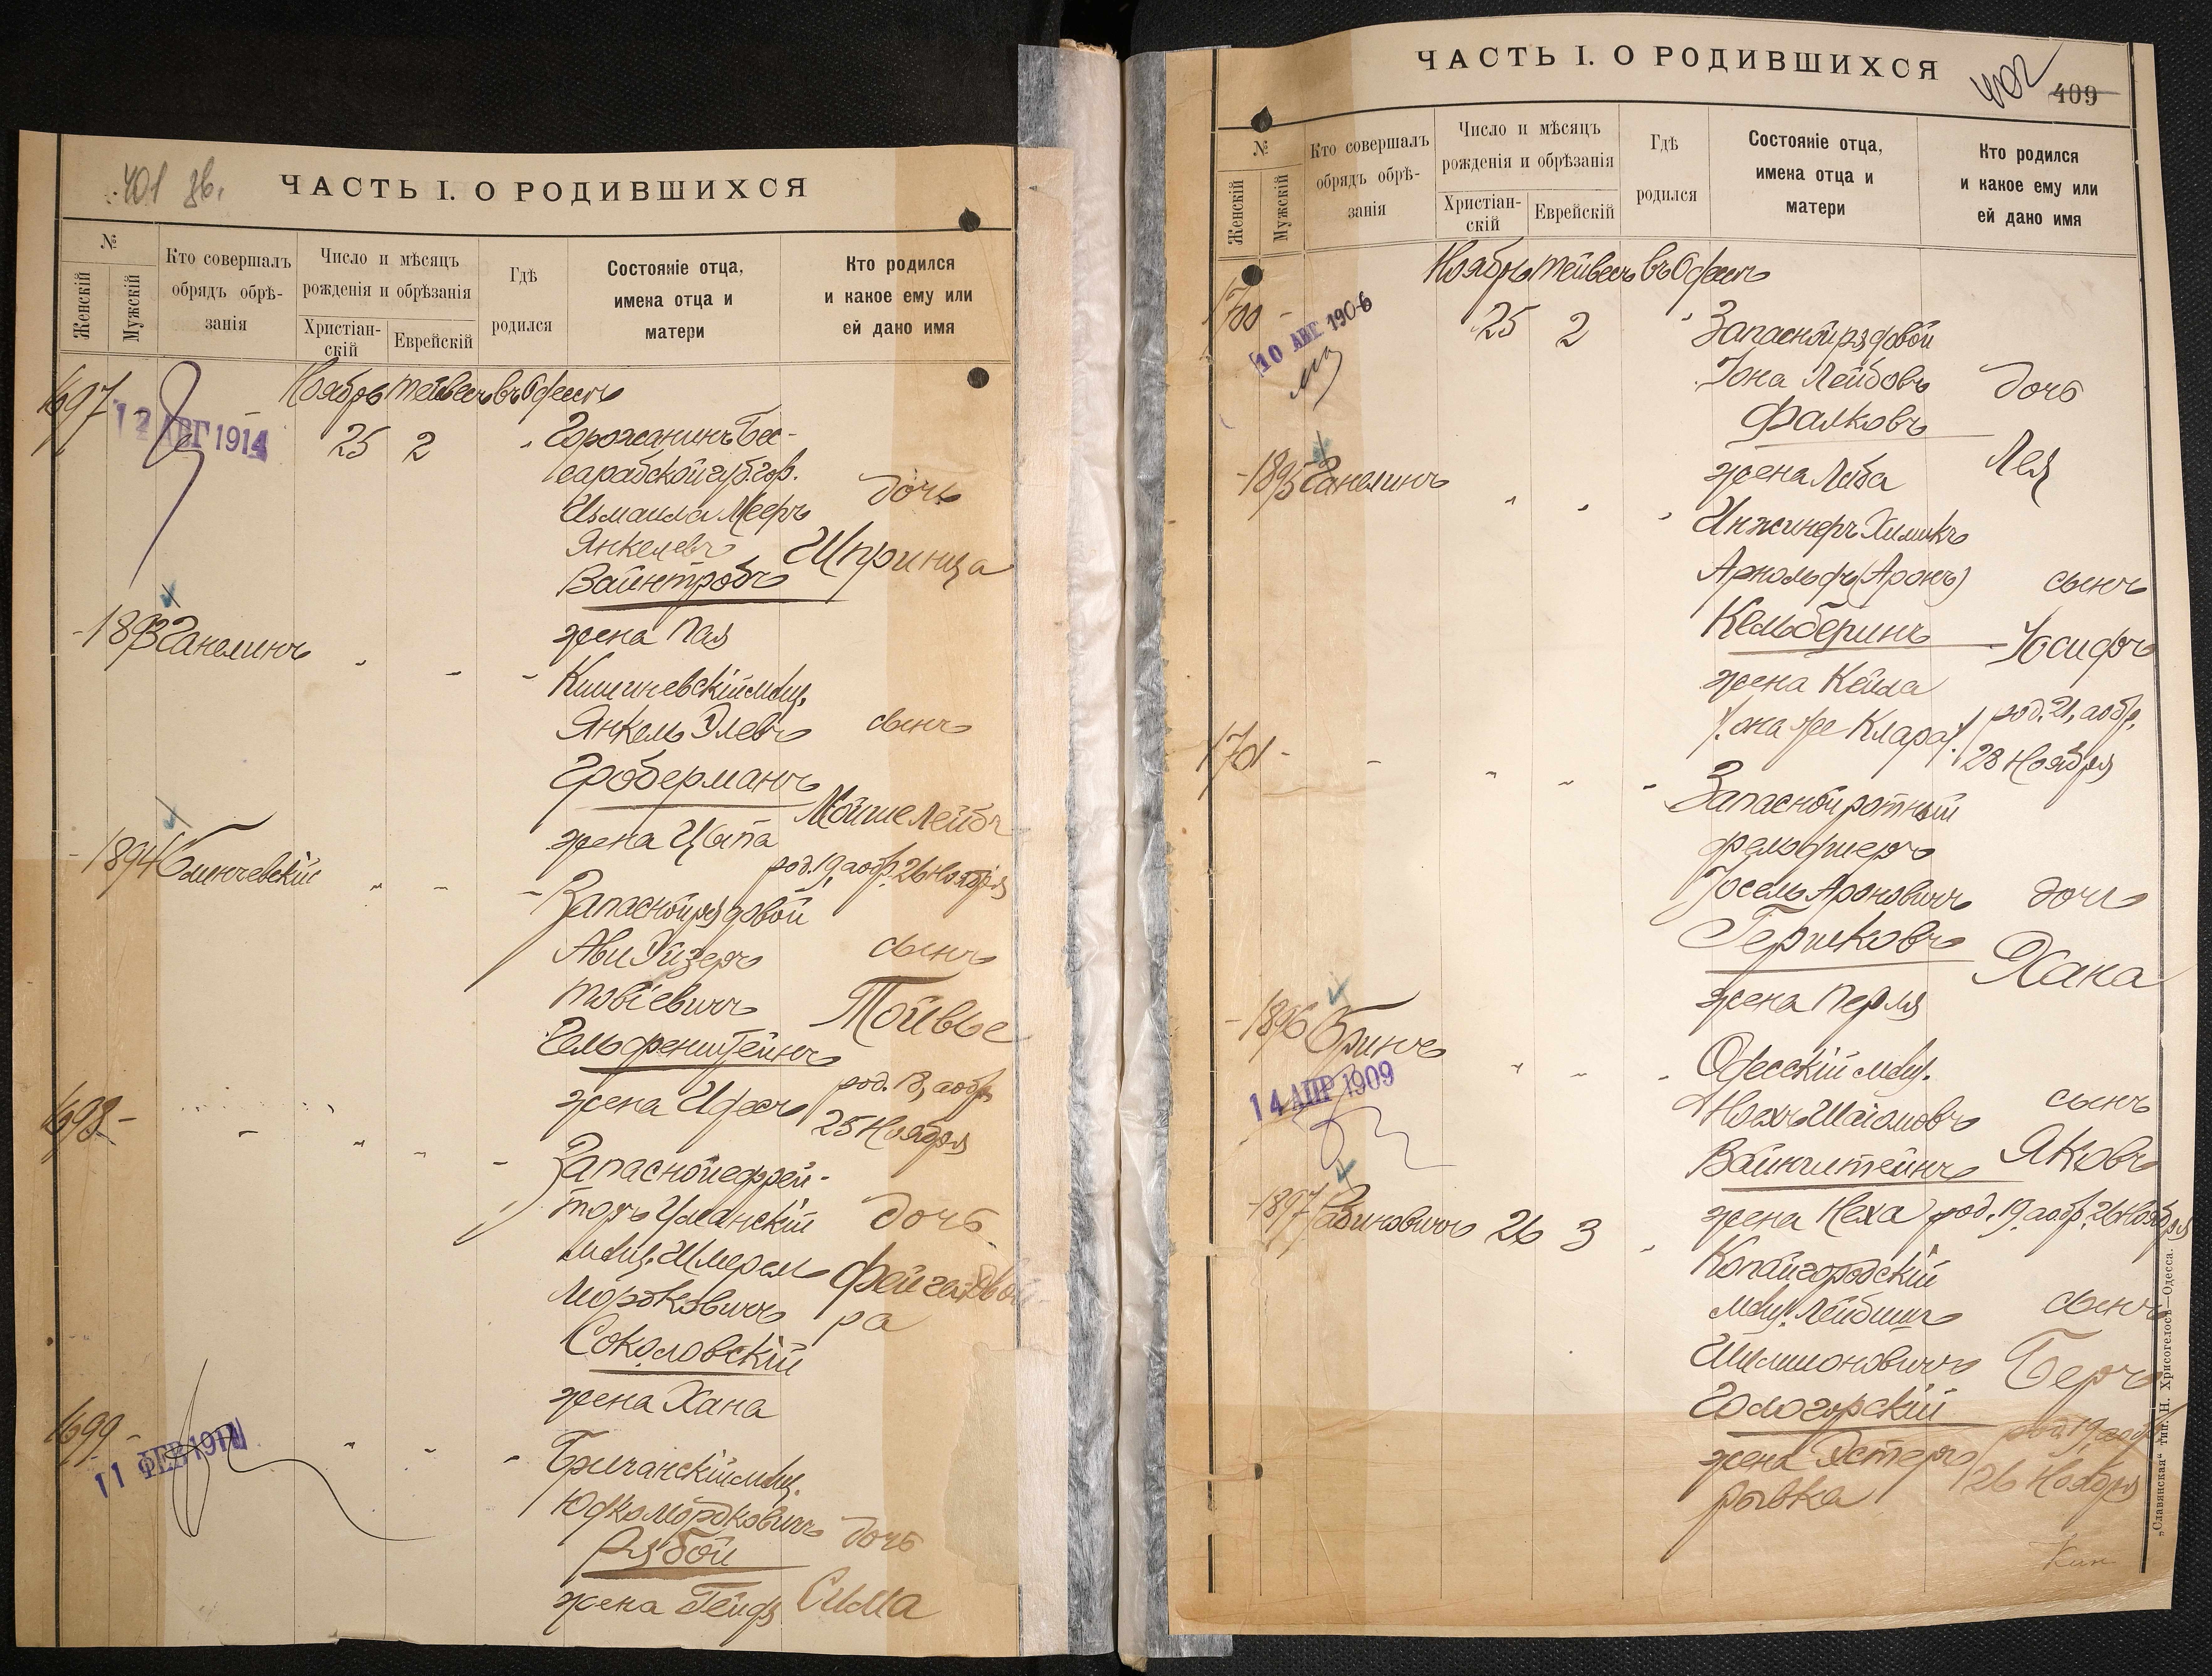 401 зв.
ЧАСТЬ I. О РОДИВШИХСЯ
№
Женскій
Мужскій
Кто совершалъ
обрядъ обрѣ-
занія
Число и мѣсяцъ
рожденія и обрѣзанія
Христіан-
скій
Еврейскій
Гдѣ
родился
Состояніе отца,
имена отца и
матери
Кто родился
и какое ему или
ей дано имя
Ноябрь Тейвесъ въ Одессѣ
1697 -
12 АВГ 1914
25 2 "
Горожанинъ Бес-
сарабской губ. гор.
Измаила Мееръ
Янкелевъ
Вайнтробъ
жена Пая
дочь
Шпринца
- 1893 Ганелинъ
Кишиневскій мѣщ.
Янкель Элевъ
Гроберманъ
жена Ципа
сынъ
Мойше Лейбъ
род. 19, а обр. 26 Ноября
- 1894 Блинчевскій
Запасной рядовой
Ави Эйзеръ
Товіевичъ
Гельфенштейнъ
жена Идесъ
сынъ
Тойвье
род. 18, а обр.
25 Ноября
1698 -
Запасной ефрей-
торъ Уманскій
мѣщ. Шмерель
Мордковичъ
Соколовскій
жена Хана
дочь
Фейга Двой
ра
1699 -
11 ФЕВ 191
Бричанскій мѣщ.
Юдко Мордковичъ
Рябой
жена Гейдя
дочь
Сима
ЧАСТЬ I. О РОДИВШИХСЯ
402
409
№
Женскій
Мужскій
Кто совершалъ
обрядъ обрѣ-
занія
Число и мѣсяцъ
рожденія и обрѣзанія
Христіан-
скій
Еврейскій
Гдѣ
родился
Состояніе отца,
имена отца и
матери
Кто родился
и какое ему или
ей дано имя
Ноябрь Тейвесъ въ Одессѣ
1700 -
10 АВГ 1906
25 2 "
Запасной рядовой
Іона Лейбовъ
Фалковъ
жена Либа
дочь
Лея
- 1895 Ганелинъ
Инженеръ Химикъ
Арнольдъ (Аронъ)
Кельберинъ
жена Кейла
/она же Клара/
сынъ
Іосифъ
род. 21, а обр.
28 Ноября
1701 -
Запасной ротный
фельдшеръ
Іосель Ароновичъ
Гершковъ
жена Перля
дочь
Хана
- 1896 Бринъ
14 АПР 1909
Одесскій мѣщ.
Нохъ Шаіомовъ
Вайнштейнъ
жена Неха
сынъ
Яковъ
род. 19, а обр. 26 Ноября
- 1897 Рабиновичъ 26 3 "
Копайгородскій
мѣщ. Лейбишъ
Шимшоновичъ
Гологорскій
жена Эстеръ
Рывка
сынъ
Беръ
род. 19, а обр.
26 Ноября
„Славянская“ тип. Н. Хрисогелосъ—Одесса.